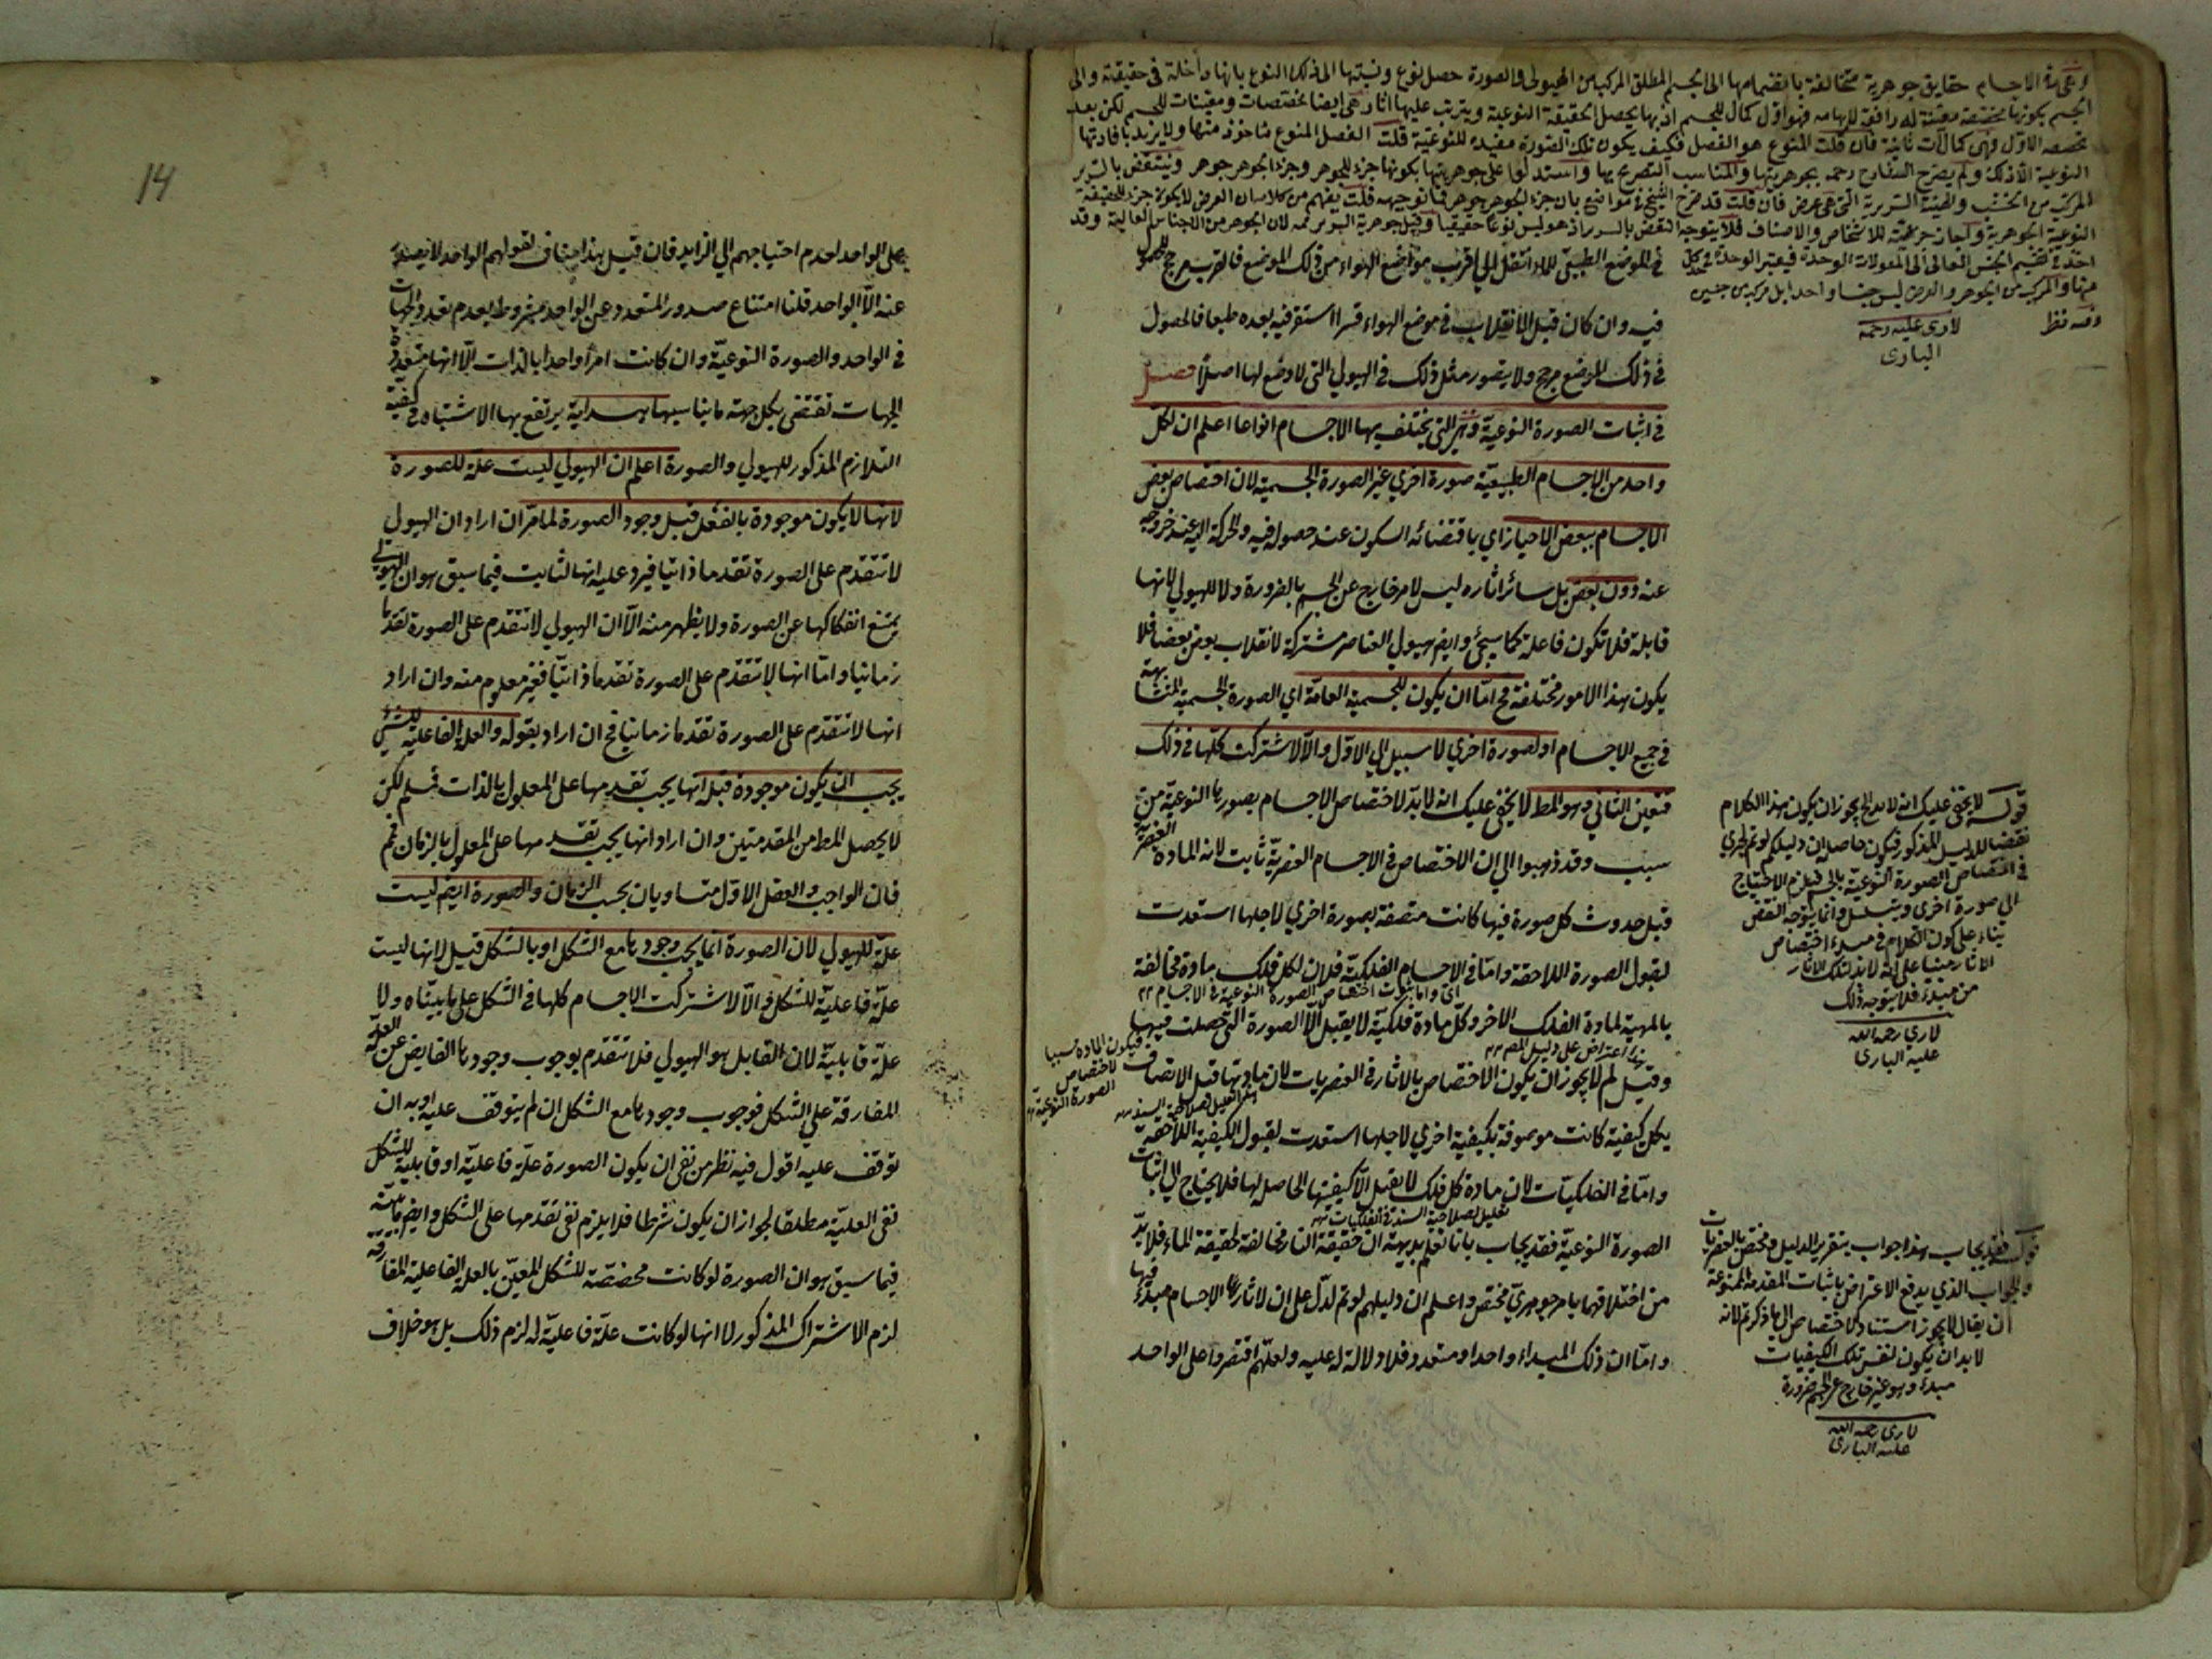 وهي في الاجسام حقايق جوهرية متخالفة بانضمامها الى الجسم المطلق المركب من الهيولى والصورة حصل نوع ونسبتها الى ذلك النوع بانها داخلة في حقيقته والى
الجسم بكونها مخصصة معينة له رافعة لابهامه فهو اول كمال للجسم اذ بها يحصل الحقيقة النوعية ويترتب عليها اثار هي ايضا مختصات ومعينات للجسم لكن بعد
تخصصه الاول وهي كمالات ثانية فان قلت المنوع هو الفصل فكيف يكون تلك الصورة مفيدة للنوعية قلت الفصل المنوع ماخوذ منها ولا يزيد بافادتها
النوعية الا ذلك ولم يصرح الشارح رحمه بجوهريتها والمناسب التصريح بها واستدلوا على جوهريتها بكونها جزء للجوهر وجزء الجوهر جوهر وينتقض بالسرير
المركب من الخشب والهيئة السريرية التي هي عرض فان قلت قد صرح الشيخ في مواضع بان جزء الجوهر جوهر فما توجيهه قلت يفهم من كلامه ان العرض لا يكون جزء للحقيقة
النوعية الجوهرية واجاز جزئيته للاشخاص والاصناف فلا يتوجه النقض بالسرير اذ هو ليس نوعا حقيقيا وقيل جوهرية السرير ممه لان الجوهر من الاجناس العالية وقد
اخذ في تقسيم الجنس العالي الى المقولات الوحدة فيعتبر الوحدة في كل
منها والمركب من الجوهر والعرض ليس جنسا واحدا بل مركب من جنسين
وفيه نظر
لاري عليه رحمة
الباري
في الموضع الطبيعي للماء انتقل الى اقرب مواضع الهواء من ذلك الموضع فالقرب مرجح للحصول
فيه وان كان قبل الانقلاب في موضع الهواء قسرا استقر فيه بعده طبعا فالحصول
في ذلك الموضع مرجح ولا يتصور مثل ذلك في الهيولي التي لا وضع لها اصلا فصل
في اثبات الصورة النوعية وهي التي يختلف بها الاجسام انواعا اعلم ان لكل
واحد من الاجسام الطبيعية صورة اخري غير الصورة الجسمية لان اختصاص بعض
الاجسام ببعض الاحياز اي باقتضائه السكون عند حصوله فيه والحركة اليه عند خروجه
عنه دون بعض بل سائر اثاره ليس لامر خارج عن الجسم بالضرورة ولا للهيولي لانها
قابلة فلا تكون فاعلة كما سيجئ وايضا هيولي العناصر مشتركة لانقلاب بعض بعضا فلا
يكون هذا الامور مختلفة فح اما ان يكون للجسمية العامة اي الصورة الجسمية المتشابهة
في جميع الاجسام او لصورة اخري لا سبيل الي الاول والا لاشتركت كلها في ذلك
فتعين الثاني وهو المط لا يخفي عليك انه لا بد لاختصاص الاجسام بصورها النوعية من
سبب وقد ذهبوا الي ان الاختصاص في الاجسام العنصرية ثابت لانه المادة العنصرية
قبل حدوث كل صورة فيها كانت متصفة بصورة اخري لاجلها استعدت
لقبول الصورة اللاحقة واما في الاجسام الفلكية فلان لكل فلك مادة مخالفة
اي واما ثبوت اختصاص الصورة النوعية في الاجسام
بالمهية لمادة الفلك الاخر وكل مادة فلكية لا يقبل الا الصورة التي حصلت فيها
فيكون المادة سببا
لاختصاص
الصورة النوعية
هذا اعتراض على دليل المصـ
وقيل لم لا يجوز ان يكون الاختصاص بالاثار في العنصريات لان مادتها قبل الاتصاف
بكل كيفية كانت موصوفة بكيفية اخري لاجلها استعدت لقبول الكيفية اللاحقة
واما في الفلكيات لان مادة كل فلك لا يقبل الا كيفيتها الحاصله لها فلا يحتاج الي اثبات
تعليل لصلاحية السند في الفلكيات
الصورة النوعية فقد يجاب بانا نعلم بديهة ان حقيقة النار مخالفة لحقيقة الماء فلا بد
من اختلافهما بامر جوهري مختص واعلم ان دليلهم لو تم لدل على ان لاثار الاجسام مبدء فيها
واما ان ذلك المبداء واحد او متعدد فلا دلالة له عليه ولعلهم اقتصروا على الواحد
قوله لا يخفى عليك انه لا بد الخ يجوز ان يكون هذا الكلام
نقضا للدليل المذكور فيكون حاصله ان دليلكم لو تم لجري
في اختصاص الصورة النوعية بالجسم فيلزم الاحتياج
الي صورة اخرى ويتسلسل وانما يتوجه النقض
بناء على كون الكلام في مبدء اختصاص
الاثار مبنيا على انه لا بد لتلك الاثار
من مبدء فلا يتوجه ذلك
لاري رحمه الله
عليه الباري
قوله فقد يجاب هذا جواب بتقرير الدليل ومختص بالعنصريات
والجواب الذي يدفع الاعتراض باثبات المقدمة الممنوعة
ان يقال لا يجوز استناد الاختصاص الى ما ذكرتم لانه
لا بد ان يكون لنفس تلك الكيفيات
مبدء وهو غير خارج عن الجسم ضرورة
لاري رحمه الله
عليه الباري
14
على الواحد لعدم احتياجهم الي الزايد فان قيل هذا مناف لقولهم الواحد لا يصدر
عنه الا الواحد قلنا امتناع صدور المتعدد عن الواحد مشروط بعدم تعدد الجهات
في الواحد والصورة النوعية وان كانت امرا واحدا بالذات الا انها متعددة
الجهات تقتضي بكل جهة ما يناسبها هداية يرتفع بها الاشتباه في كيفية
التلازم المذكور للهيولي والصورة اعلم ان الهيولي ليست علة للصورة
لانها لا يكون موجودة بالفعل قبل وجود الصورة لما مر ان اراد ان الهيولي
لا تتقدم على الصورة تقدما ذاتيا فيرد عليه انها لثابت فيما سبق هو ان الهيولي
يمتنع انفكاكها عن الصورة ولا يظهر منه الا ان الهيولي لا تتقدم على الصورة تقدما
زمانيا واما انها لا تتقدم على الصورة تقدما ذاتيا فغير معلوم منه وان اراد
انها لا تتقدم على الصورة تقدما زمانيا فح ان اراد بقوله والعلة الفاعلية للشيء
يجب ان يكون موجودة قبله انها يجب تقدمها على المعلول بالذات فمسلم لكن
لا يحصل المط من المقدمتين وان اراد انها يجب تقدمها على المعلول بالزمان فمم
فان الواجب والعقل الاول متساويان بحسب الزمان والصورة ايضا ليست
علة للهيولي لان الصورة انما يجب وجودها مع الشكل او بالشكل قيل لانها ليست
علة فاعلية للشكل والا لاشتركت الاجسام كلها في الشكل على ما بيناه ولا
علة قابلية لان القابل هو الهيولي فلا تتقدم بوجوب وجودها الفايض عن العلة
المفارقة علي الشكل فوجوب وجودها مع الشكل ان لم يتوقف عليه او به ان
توقف عليه اقول فيه نظر من نفي ان يكون الصورة علة فاعلية او قابلية للشكل
نفي العلية مطلقا لجواز ان يكون شرطا فلا يلزم نفي تقدمها على الشكل وايضا ما بينه
فيما سبق هو ان الصورة لو كانت مخصصة للشكل المعين بالعلة الفاعلية المفارقة
لزم الاشتراك المذكور لا انها لو كانت علة فاعلية له لزم ذلك بل هو خلاف